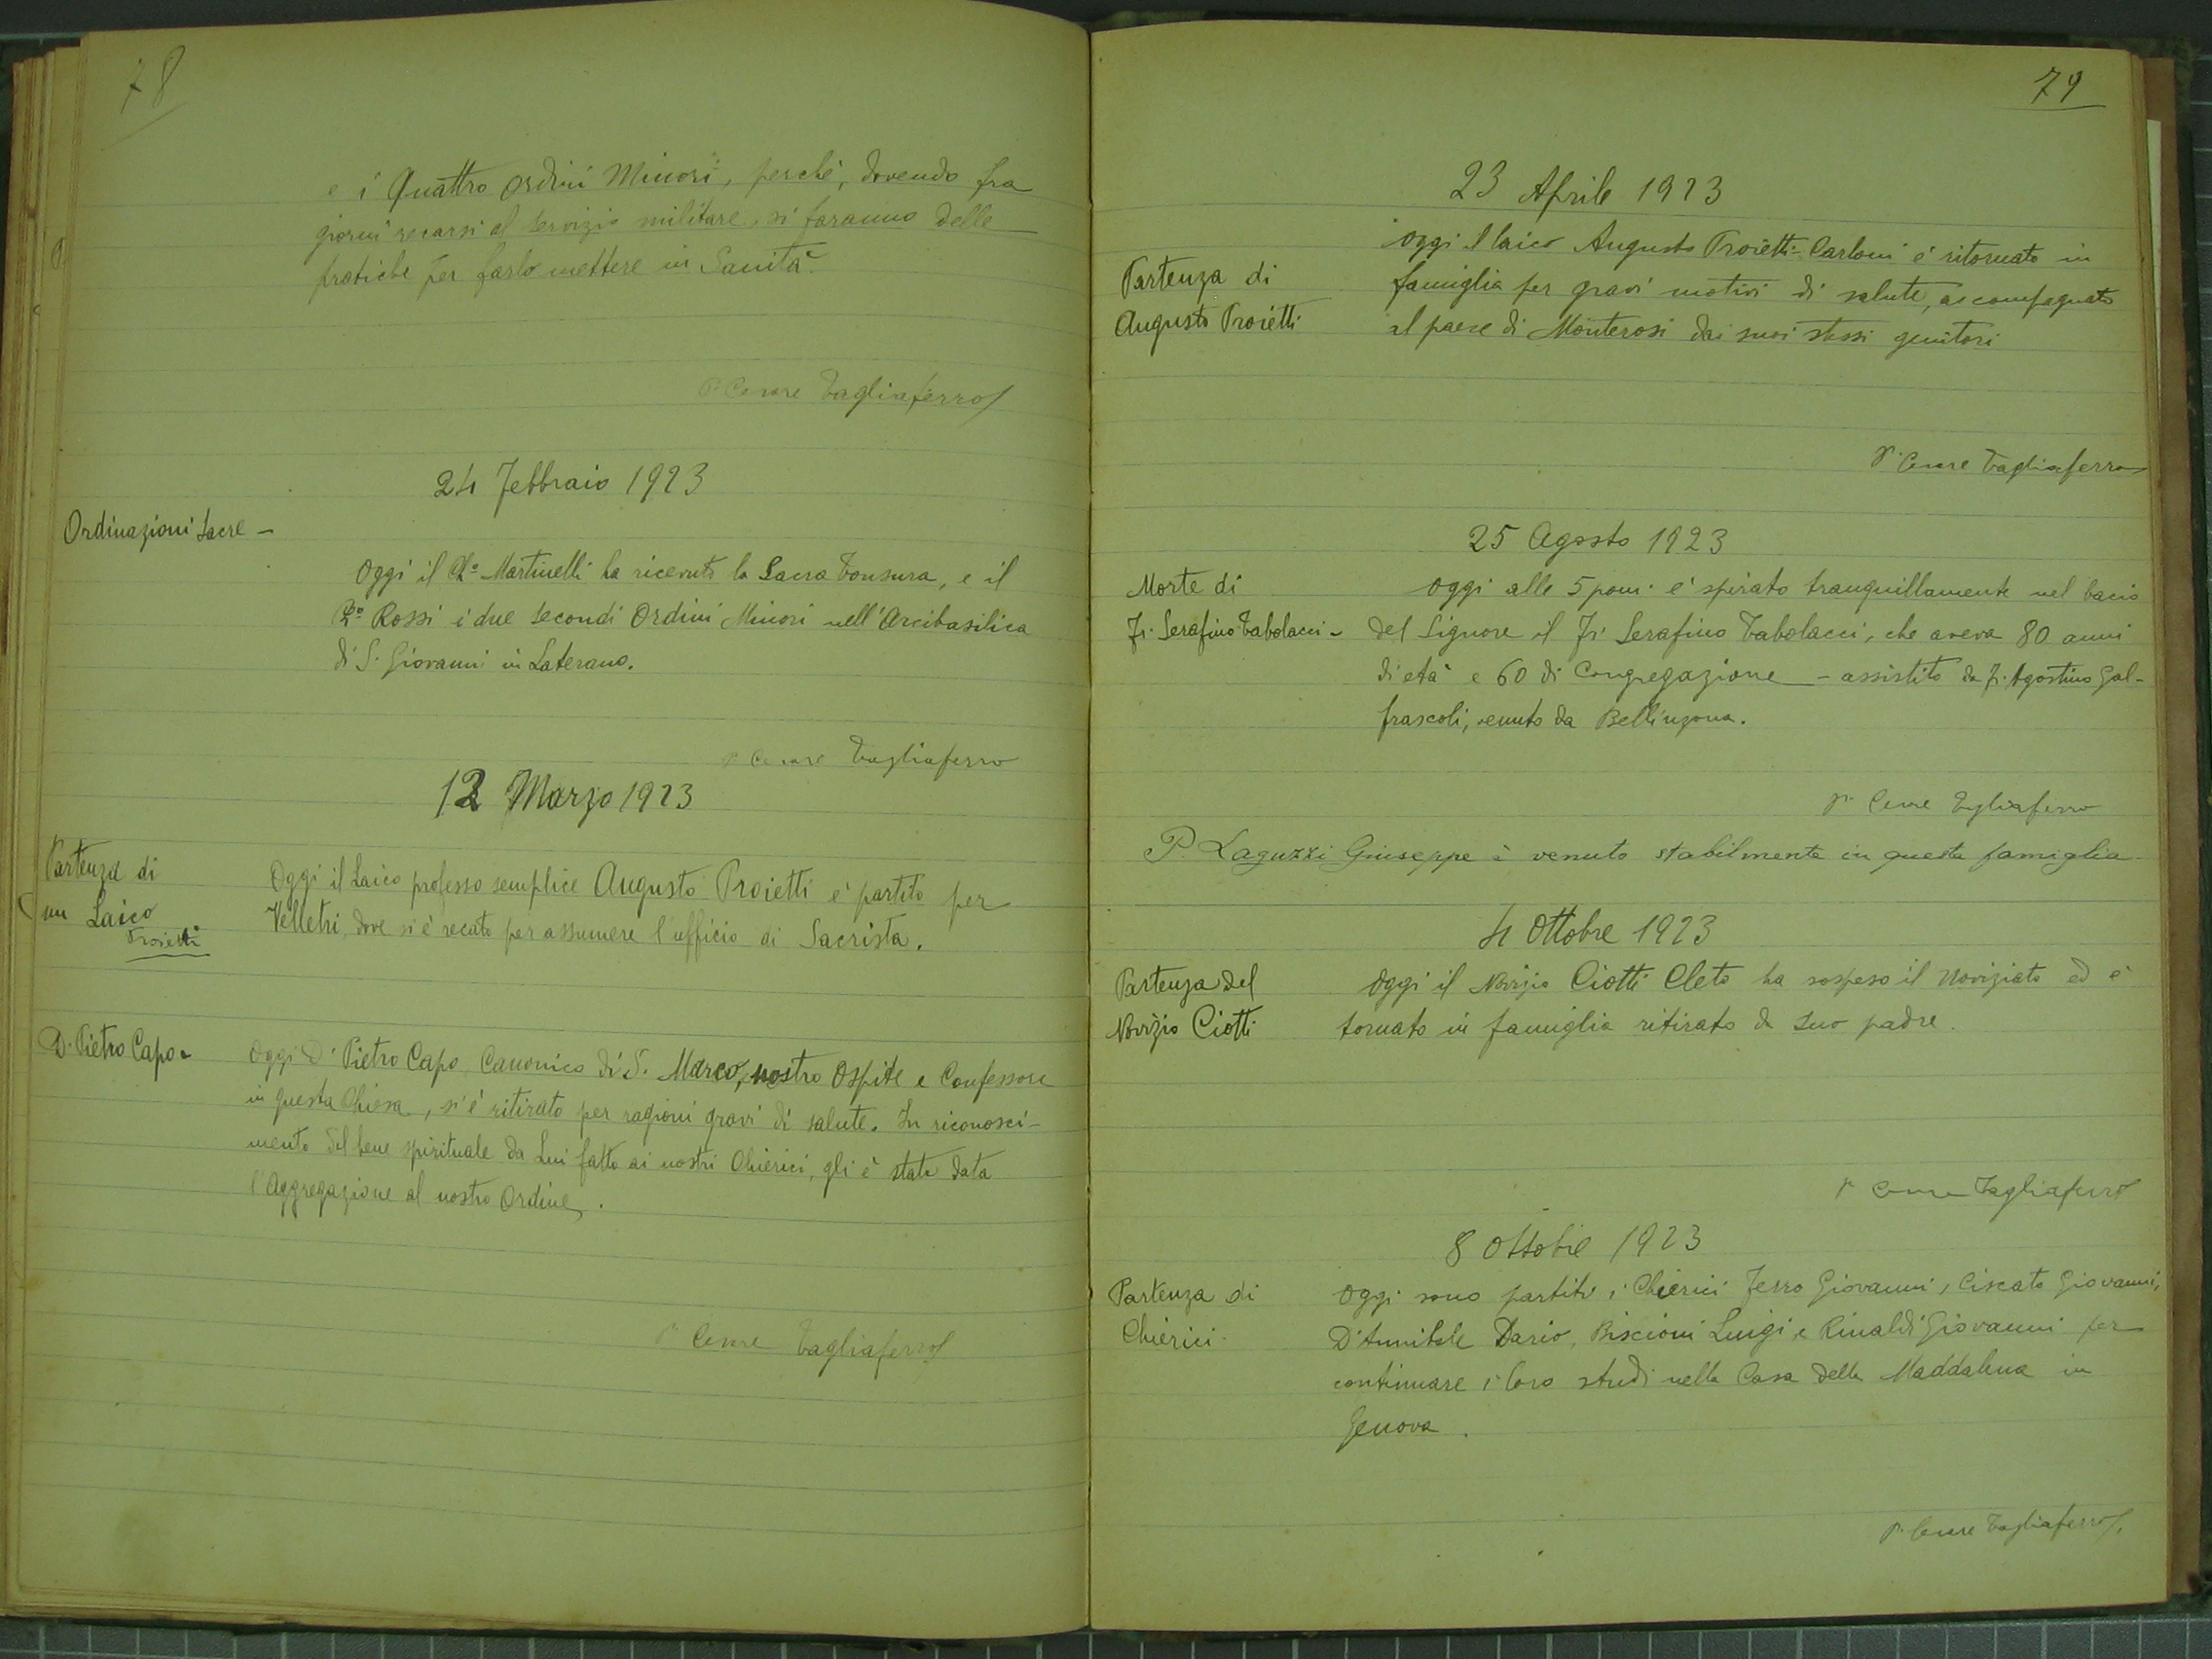 78
e i Quattro Ordini Minori, perchè, dovendo fra
giorni recarsi al servizio militare, si faranno delle
pratiche per farlo mettere in Sanità.
P. Cesare Tagliaferro
24 Febbraio 1923
Ordinazioni Sacre -
Oggi il Ch.o Martinelli ha ricevuto la Sacra Tonsura, e il
Ch.o Rossi i due secondi Ordini Minori nell'Arcibasilica
di S. Giovanni in Laterano.
P. Cesare Tagliaferro
12 Marzo 1923
Partenza di
un Laico
Proietti
Oggi il Laico professo semplice Augusto Proietti è partito per
Velletri, dove si è recato per assumere l'ufficio di Sacrista.
D. Pietro Capo -
Oggi D. Pietro Capo Canonico di S. Marco, nostro Ospite e Confessore
in questa Chiesa, si è ritirato per ragioni gravi di salute. In riconosci-
mento del bene spirituale da Lui fatto ai nostri Chierici, gli è stata data
l'Aggregazione al nostro Ordine.
P. Cesare Tagliaferro
79
23 Aprile 1923
Partenza di
Augusto Proietti
Oggi il laico Augusto Proietti-Carloni è ritornato in
famiglia per gravi motivi di salute, accompagnato
al paese di Monterosi dai suoi stessi genitori
P. Cesare Tagliaferro
25 Agosto 1923
Morte di
Fr. Serafino Tabolacci -
Oggi alle 5 pom. è spirato tranquillamente nel bacio
del Signore il Fr. Serafino Tabolacci, che aveva 80 anni
di età e 60 di Congregazione - assistito da Fr. Agostino Gal-
frascoli, venuto da Bellinzona.
P. Cesare Tagliaferro
P. Laguzzi Giuseppe è venuto stabilmente in questa famiglia.
4 Ottobre 1923
Partenza del
Novizio Ciotti
Oggi il Novizio Ciotti Cleto ha sospeso il Noviziato ed è
tornato in famiglia ritirato da suo padre.
P. Cesare Tagliaferro
8 Ottobre 1923
Partenza di
Chierici.
Oggi sono partiti i Chierici Ferro Giovanni, Ciscato Giovanni,
D'Annibale Dario, Biscioni Luigi e Rinaldi Giovanni per
continuare i loro studi nella Casa della Maddalena in
Genova.
P. Cesare Tagliaferro